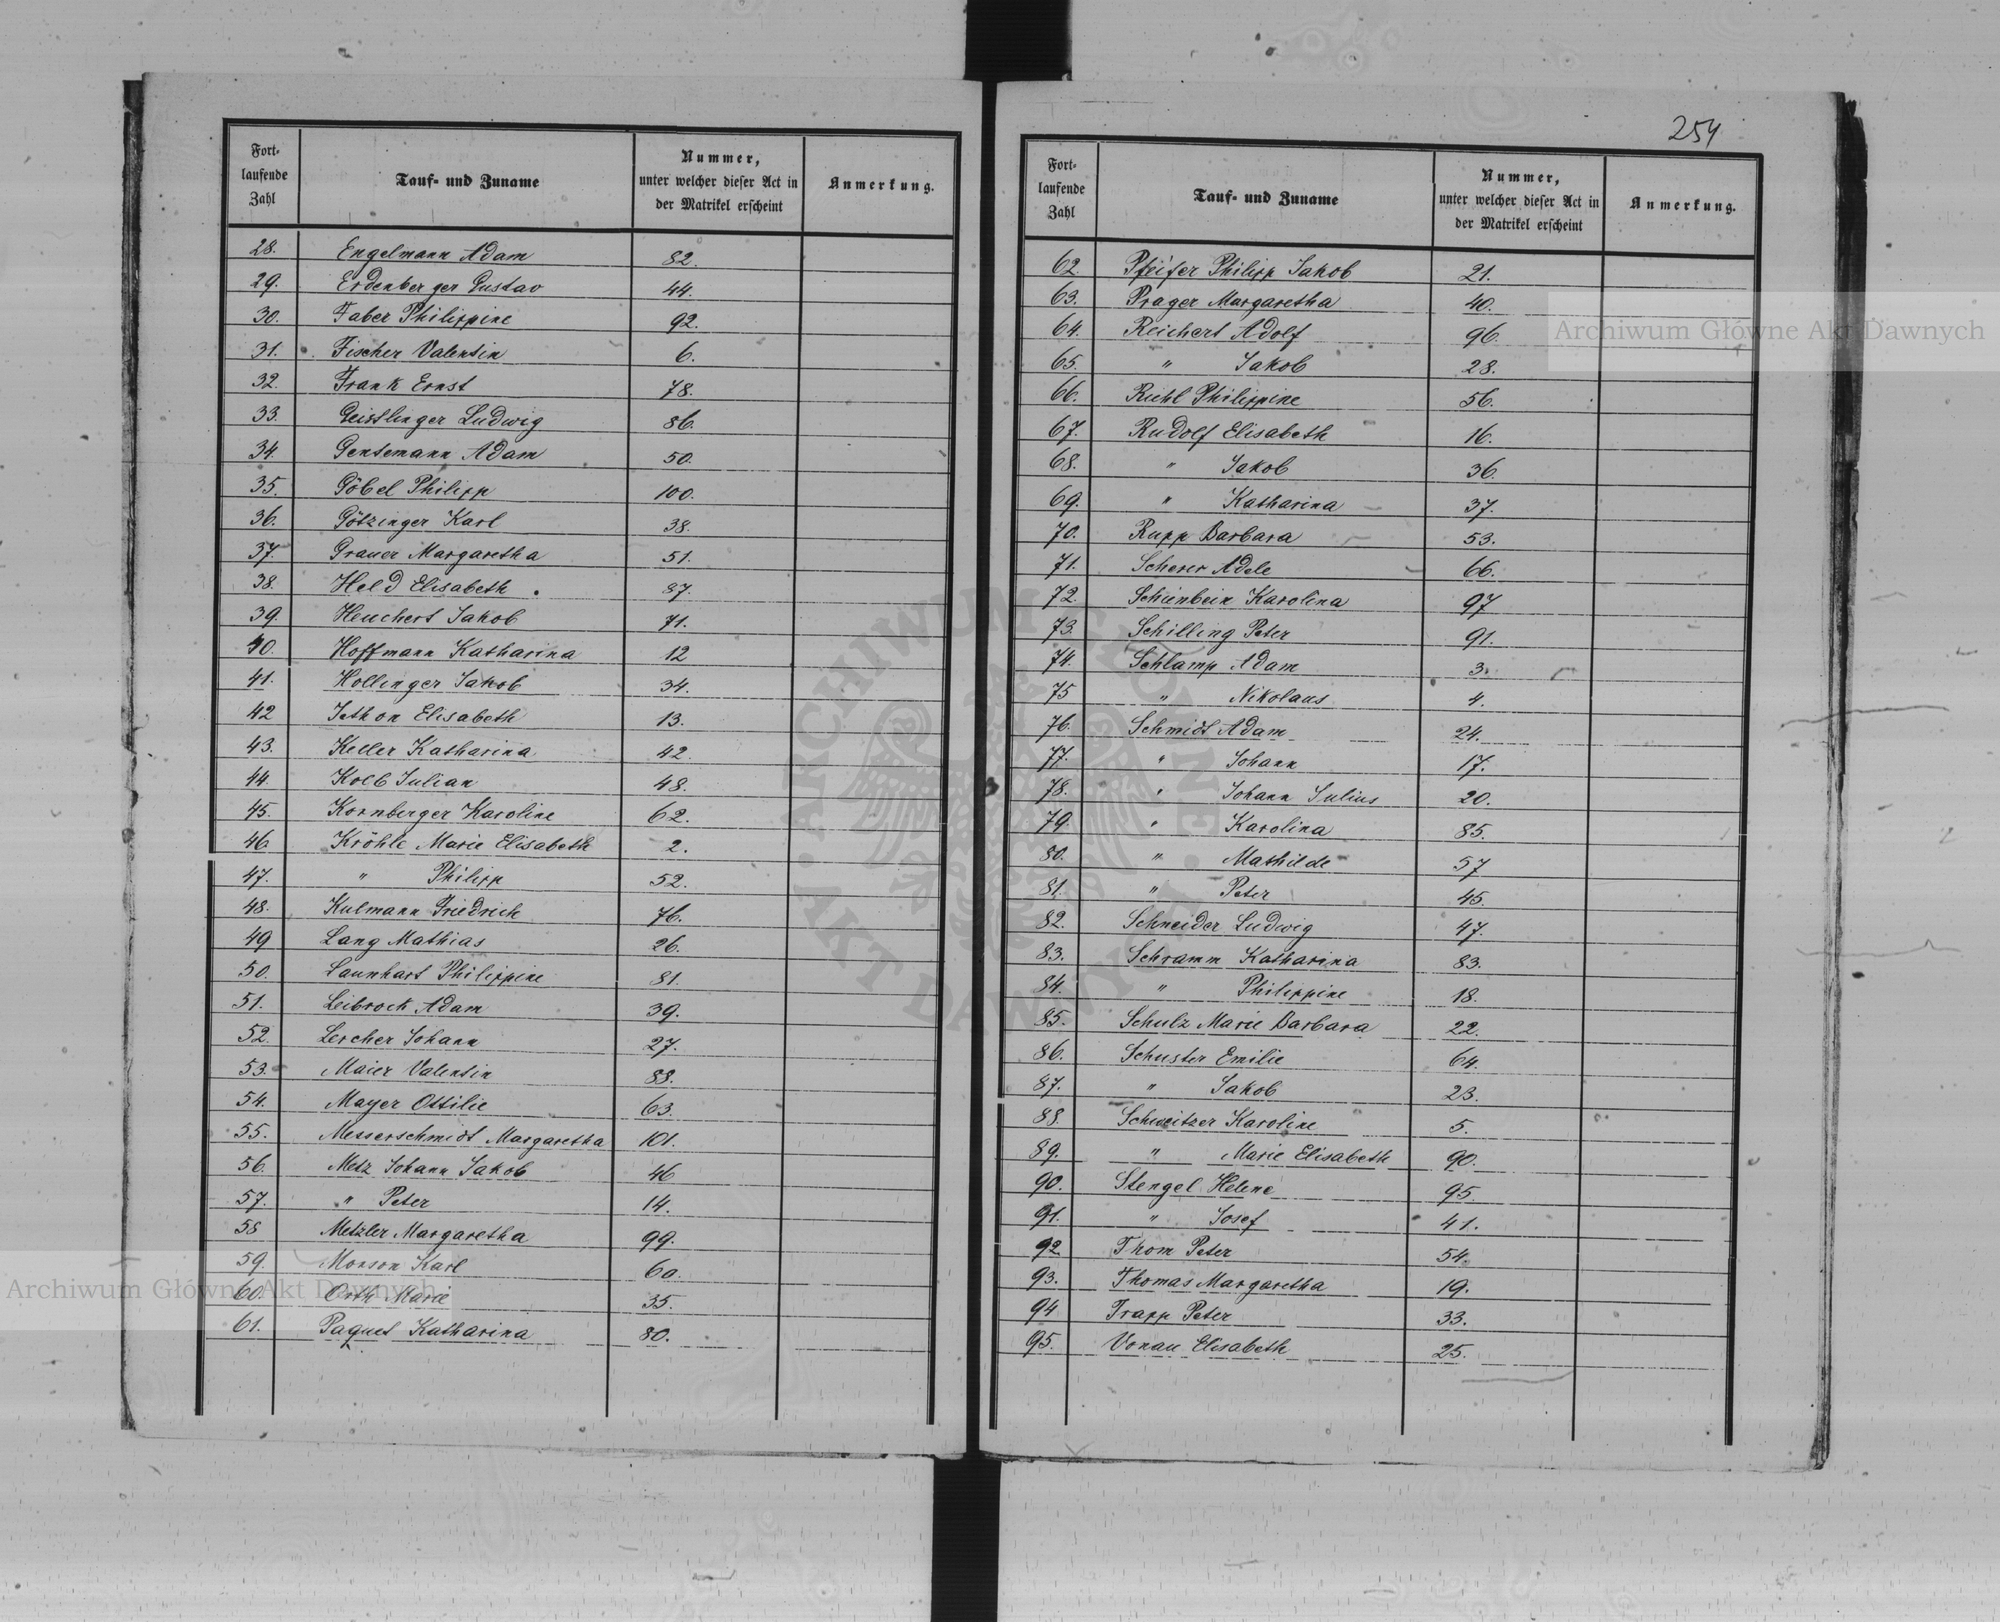 254
Fort-
laufende
Zahl
Tauf- und Zuname
Nummer,
unter welcher dieser Act in
der Matrikel erscheint
Anmerkung.
28. Engelmann Adam 82.
29. Erdenberger Gustav 44.
30. Faber Philippine 92.
31. Fischer Valentin 6.
32. Frank Ernst 78.
33. Geisslinger Ludwig 86.
34. Gensemann Adam 50.
35. Göbel Philipp 100.
36. Götzinger Karl 38.
37. Grauer Margaretha 51.
38. Held Elisabeth 87.
39. Heuchert Jakob 71.
40. Hoffmann Katharina 12
41. Hollinger Jakob 34.
42 Jethon Elisabeth 13.
43. Keller Katharina 42.
44. Kolb Julian 48.
45. Kornberger Karoline 62.
46 Kröhle Marie Elisabeth 2.
47. " Philipp 52.
48. Kulmann Friedrich 76.
49 Lang Mathias 26.
50. Launhart Philippine 81.
51. Leibrock Adam 39.
52. Lercher Johann 27.
53. Maier Valentin 88.
54. Mayer Ottilie 63.
55. Messerschmidt Margaretha 101.
56. Metz Johann Jakob 46
57. " Peter 14.
58 Metzler Margaretha 99.
59. Monson Karl 60.
60. Orth Marie 35.
61. Paquet Katharina 80.
Fort-
laufende
Zahl
Tauf- und Zuname
Nummer,
unter welcher dieser Act in
der Matrikel erscheint
Anmerkung.
62. Pfeifer Philipp Jakob 21.
63. Prager Margaretha 40.
64. Reichert Adolf 96.
65. " Jakob 28.
66. Riehl Philippine 56.
67. Rudolf Elisabeth 16.
68. " Jakob 36.
69. " Katharina 37.
70. Rupp Barbara 53.
71. Scherer Adele 66.
72. Schienbein Karolina 97
73. Schilling Peter 91.
74. Schlamp Adam 3.
75 " Nikolaus 4.
76. Schmidt Adam 24.
77. " Johann 17.
78. " Johann Julius 20.
79. " Karolina 85.
80. " Mathilde 57
81. " Peter 45.
82. Schneider Ludwig 47.
83. Schramm Katharina 83.
84. " Philippine 18.
85. Schulz Marie Barbara 22.
86. Schuster Emilie 64.
87. " Jakob 23.
88. Schweitzer Karoline 5.
89. " Marie Elisabeth 90.
90. Stengel Helene 95.
91. " Josef 41.
92. Thom Peter 54.
93. Thomas Margaretha 19.
94 Trapp Peter 33.
95. Vonau Elisabeth 25.
Archiwum Główne Akt Dawnych
Archiwum Główne Akt Dawnych
ARCHIWUM GŁÓWNE AKT DAWNYCH